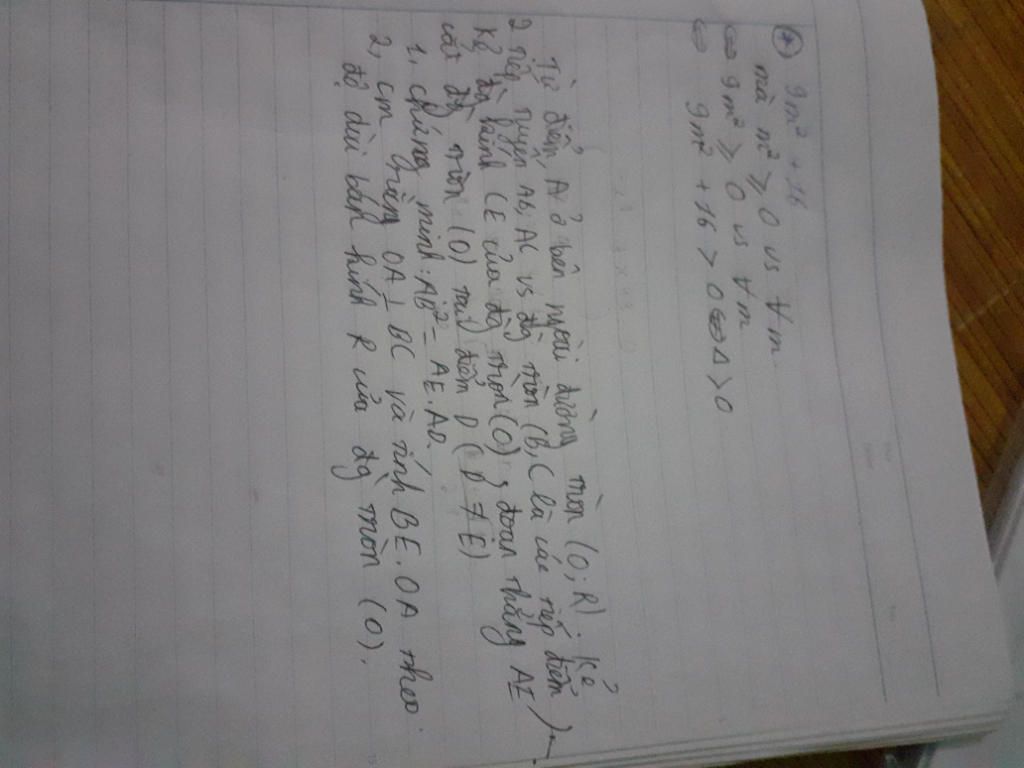 (*) 9m² + 16
mà m² ≥ 0 vs ∀m
⇔ 9m² ≥ 0 vs ∀m
⇔ 9m² + 16 > 0 ⇔ Δ > 0
Từ điểm A ở bên ngoài đường tròn (O; R). Kẻ
2 tiếp tuyến AB, AC vs đg tròn (B, C là các tiếp điểm)
Kẻ đg kính CE của đg tròn (O), đoạn thẳng AE
cắt đg tròn (O) tại điểm D (D ≠ E).
1, chứng minh: AB² = AE. AD.
2, cm rằng OA ⊥ BC và tính BE. OA theo
độ dài bán kính R của đg tròn (O).